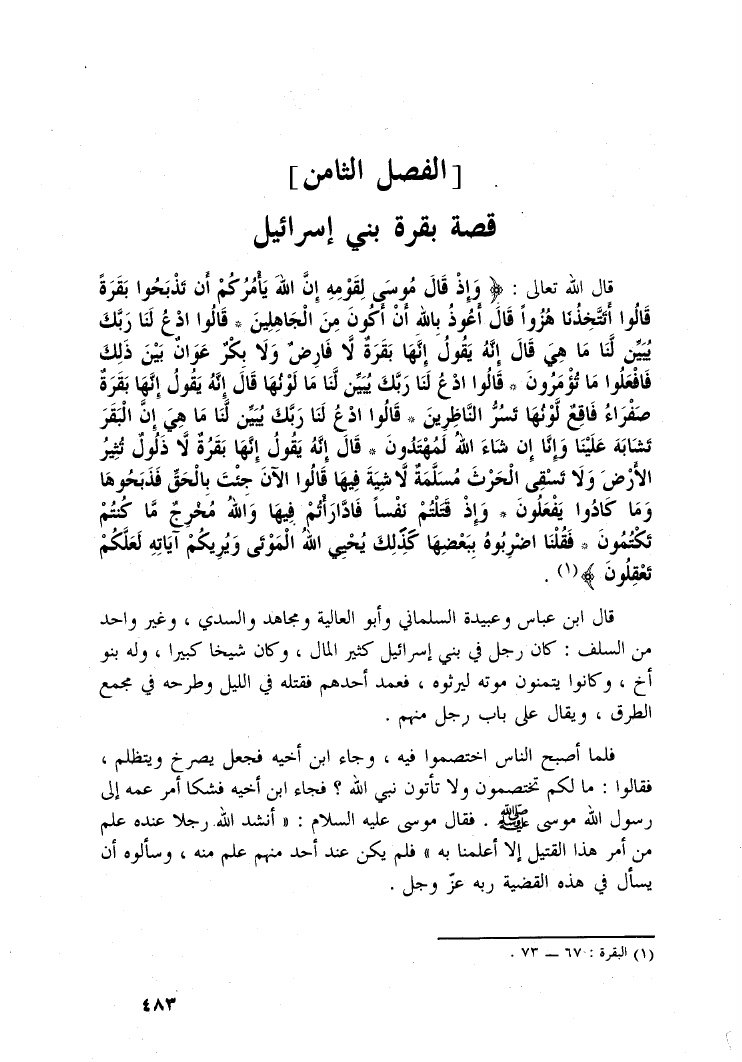 [ الفصل الثامن ]
قصة بقرة بني إسرائيل
قال الله تعالى : ﴿ وَإِذْ قَالَ مُوسَى لِقَوْمِهِ إِنَّ اللهَ يَأْمُرُكُمْ أَن تَذْبَحُوا بَقَرَةً
قَالُوا أَتَتَّخِذُنَا هُزُواً قَالَ أَعُوذُ بِاللهِ أَنْ أَكُونَ مِنَ الْجَاهِلِينَ * قَالُوا ادْعُ لَنَا رَبَّكَ
يُبَيِّن لَّنَا مَا هِيَ قَالَ إِنَّهُ يَقُولُ إِنَّهَا بَقَرَةٌ لَّا فَارِضٌ وَلَا بِكْرٌ عَوَانٌ بَيْنَ ذَلِكَ
فَافْعَلُوا مَا تُؤْمَرُونَ * قَالُوا ادْعُ لَنَا رَبَّكَ يُبَيِّن لَّنَا مَا لَوْنُهَا قَالَ إِنَّهُ يَقُولُ إِنَّهَا بَقَرَةٌ
صَفْرَاءُ فَاقِعٌ لَّوْنُهَا تَسُرُّ النَّاظِرِينَ * قَالُوا ادْعُ لَنَا رَبَّكَ يُبَيِّن لَّنَا مَا هِيَ إِنَّ الْبَقَرَ
تَشَابَهَ عَلَيْنَا وَإِنَّا إِن شَاءَ اللهُ لَمُهْتَدُونَ * قَالَ إِنَّهُ يَقُولُ إِنَّهَا بَقَرَةٌ لَّا ذَلُولٌ تُثِيرُ
الأَرْضَ وَلَا تَسْقِى الْحَرْثَ مُسَلَّمَةٌ لَّاشِيَةَ فِيهَا قَالُوا الآنَ جِئْتَ بِالْحَقِّ فَذَبَحُوهَا
وَمَا كَادُوا يَفْعَلُونَ * وَإِذْ قَتَلْتُمْ نَفْساً فَادَّارَأْتُمْ فِيهَا وَاللهُ مُخْرِجٌ مَّا كُنتُمْ
تَكْتُمُونَ * فَقُلْنَا اضْرِبُوهُ بِبَعْضِهَا كَذَلِكَ يُحْيِي اللهُ الْمَوْتَى وَيُرِيكُمْ آيَاتِهِ لَعَلَّكُمْ
تَعْقِلُونَ ﴾(١) .
قال ابن عباس وعبيدة السلماني وأبو العالية ومجاهد والسدي ، وغير واحد
من السلف : كان رجل في بني إسرائيل كثير المال ، وكان شيخا كبيرا ، وله بنو
أخ ، وكانوا يتمنون موته ليرثوه ، فعمد أحدهم فقتله في الليل وطرحه في مجمع
الطرق ، ويقال على باب رجل منهم .
فلما أصبح الناس اختصموا فيه ، وجاء ابن أخيه فجعل يصرخ ويتظلم ،
فقالوا : ما لكم تختصمون ولا تأتون نبي الله ؟ فجاء ابن أخيه فشكا أمر عمه إلى
رسول الله موسى ﷺ . فقال موسى عليه السلام : « أنشد الله رجلا عنده علم
من أمر هذا القتيل إلا أعلمنا به » فلم يكن عند أحد منهم علم منه ، وسألوه أن
يسأل في هذه القضية ربه عزّ وجل .
(١) البقرة : ٦٧ — ٧٣ .
٤٨٣